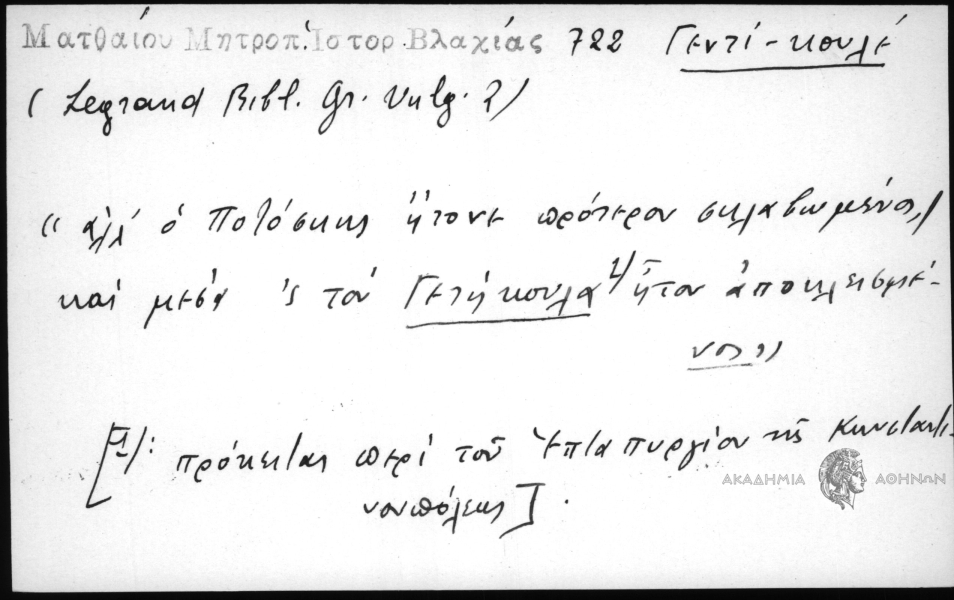 Ματθαίου Μητροπ. Ἱστορ. Βλαχίας 722 Γεντί-κουλέ
(Legrand Bibl. Gr. Vulg. 2)
“ ἀλλ' ὁ Ποτόσκης ἤτονε πρότερον σκλαβωμένος,/
καὶ μέσα 'ς τὸν Γετήκουλα 1/ ἦτον ἀποκλεισμέ-
νος ”
[1/: πρόκειται περὶ τοῦ Ἑπταπυργίου τῆς Κωνσταντι-
νουπόλεως].
ΑΚΑΔΗΜΙΑ ΑΘΗΝΩΝ